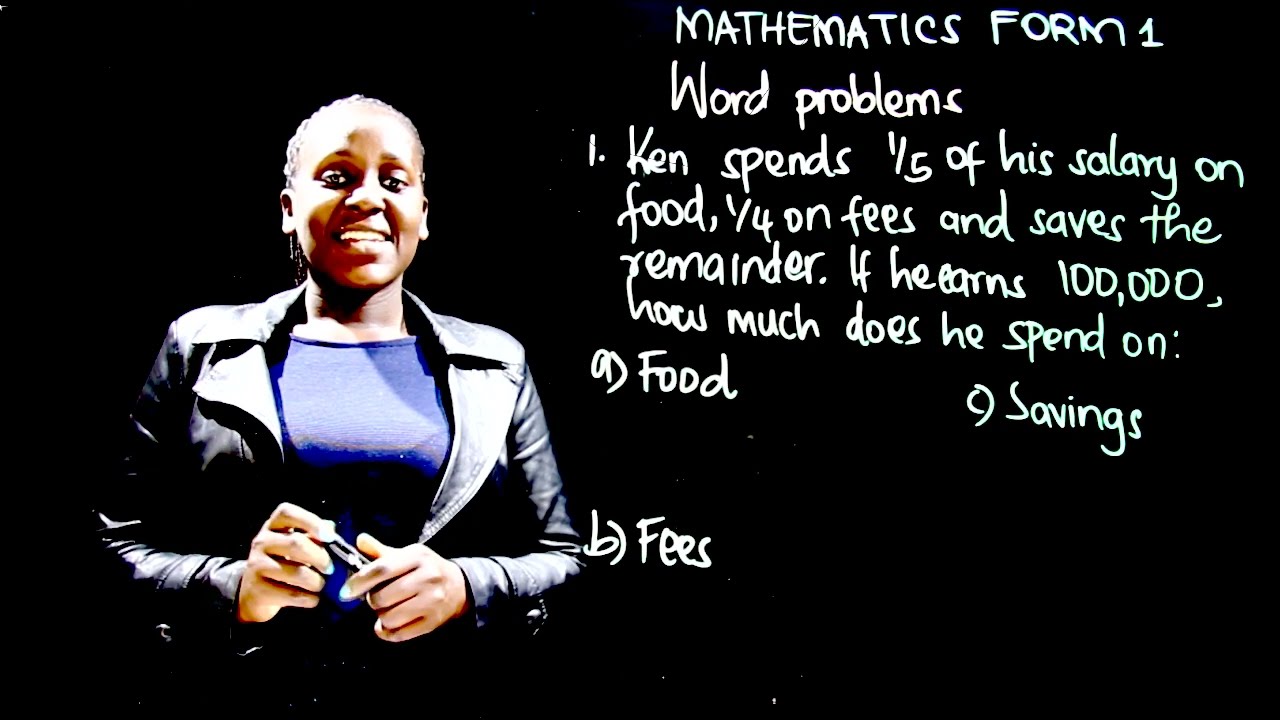 MATHEMATICS FORM 1
Word problems
1. Ken spends 1/5 of his salary on
food, 1/4 on fees and saves the
remainder. If he earns 100,000,
how much does he spend on:
a) Food
c) Savings
b) Fees